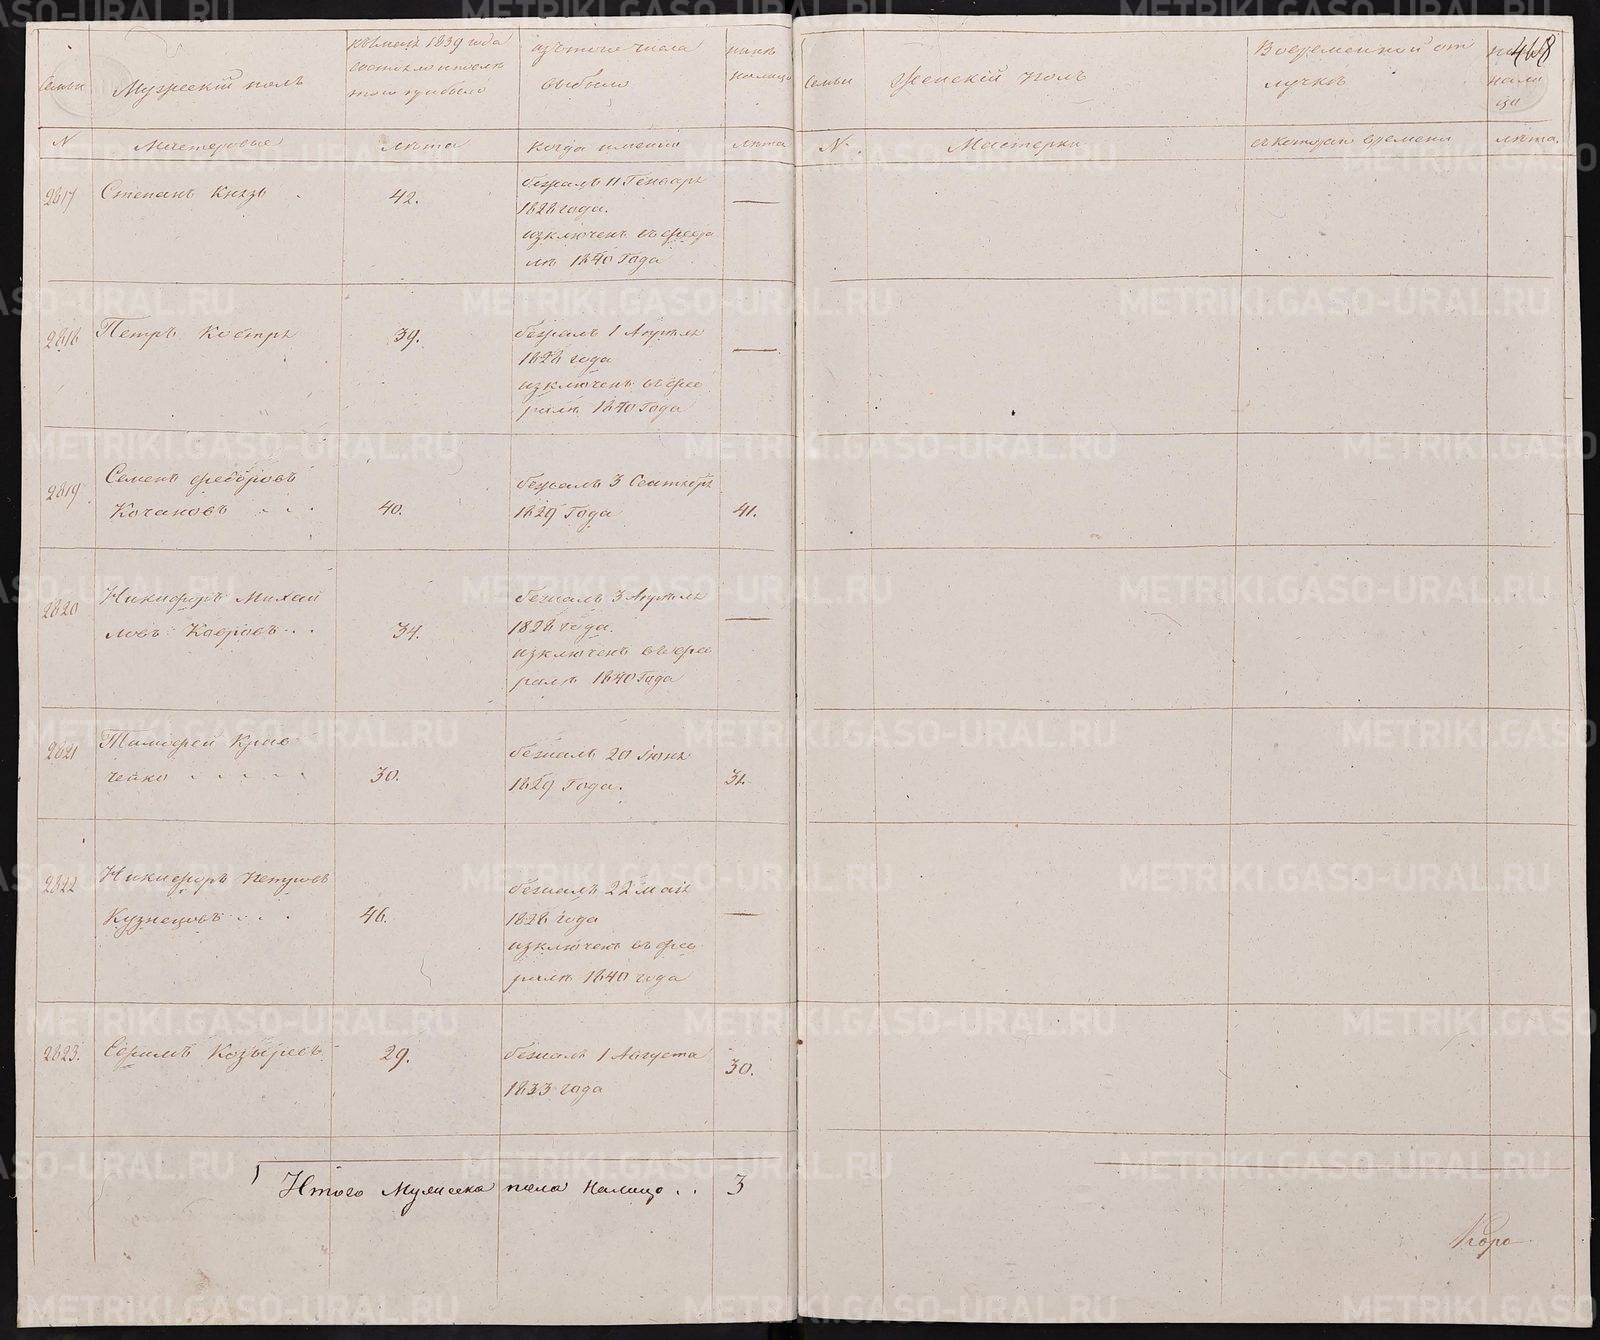 468
Семьи
Мужескiй полъ
къ маiю 1839 года
состояло и после
того прибыло
изъ того числа
выбыло
ныне
налицо
Семьи
Женскiй полъ
Во временной от
лучкѣ
на
лицо
N
Мастеровые
лѣта
когда именно
лѣта
N.
Мастерки
съ котораго времени
лѣта.
2817
Степанъ Князь
42.
бежалъ 11 Генваря
1828 года.
изключенъ въ февра
лѣ 1840 Года
—
2818
Петръ Костря
39.
бежалъ 1 Апреля
1828 года
изключенъ въ фев
ралѣ 1840 Года
—
2819
Семенъ Федоровъ
Кочановъ . . .
40.
бежалъ 3 Сентября
1829 Года
41.
2820
Никифоръ Михай
ловъ Кавровъ . .
34.
бежалъ 3 Апреля
1828 года.
изключенъ въ фев
ралѣ 1840 Года
—
2821
Тимофей Крав
ченко . . . . .
30.
бежалъ 20 Iюня
1829 Года.
31.
2822
Никифоръ Петровъ
Кузнецовъ . . .
46.
бежалъ 22 мая
1828 года
изключенъ въ фев
ралѣ 1840 года
—
2823.
Ефимъ Козыревъ
29.
бежалъ 1 Августа
1833 года
30.
Итого Мужеска пола налицо . . 3
METRIKI.GASO-URAL.RU